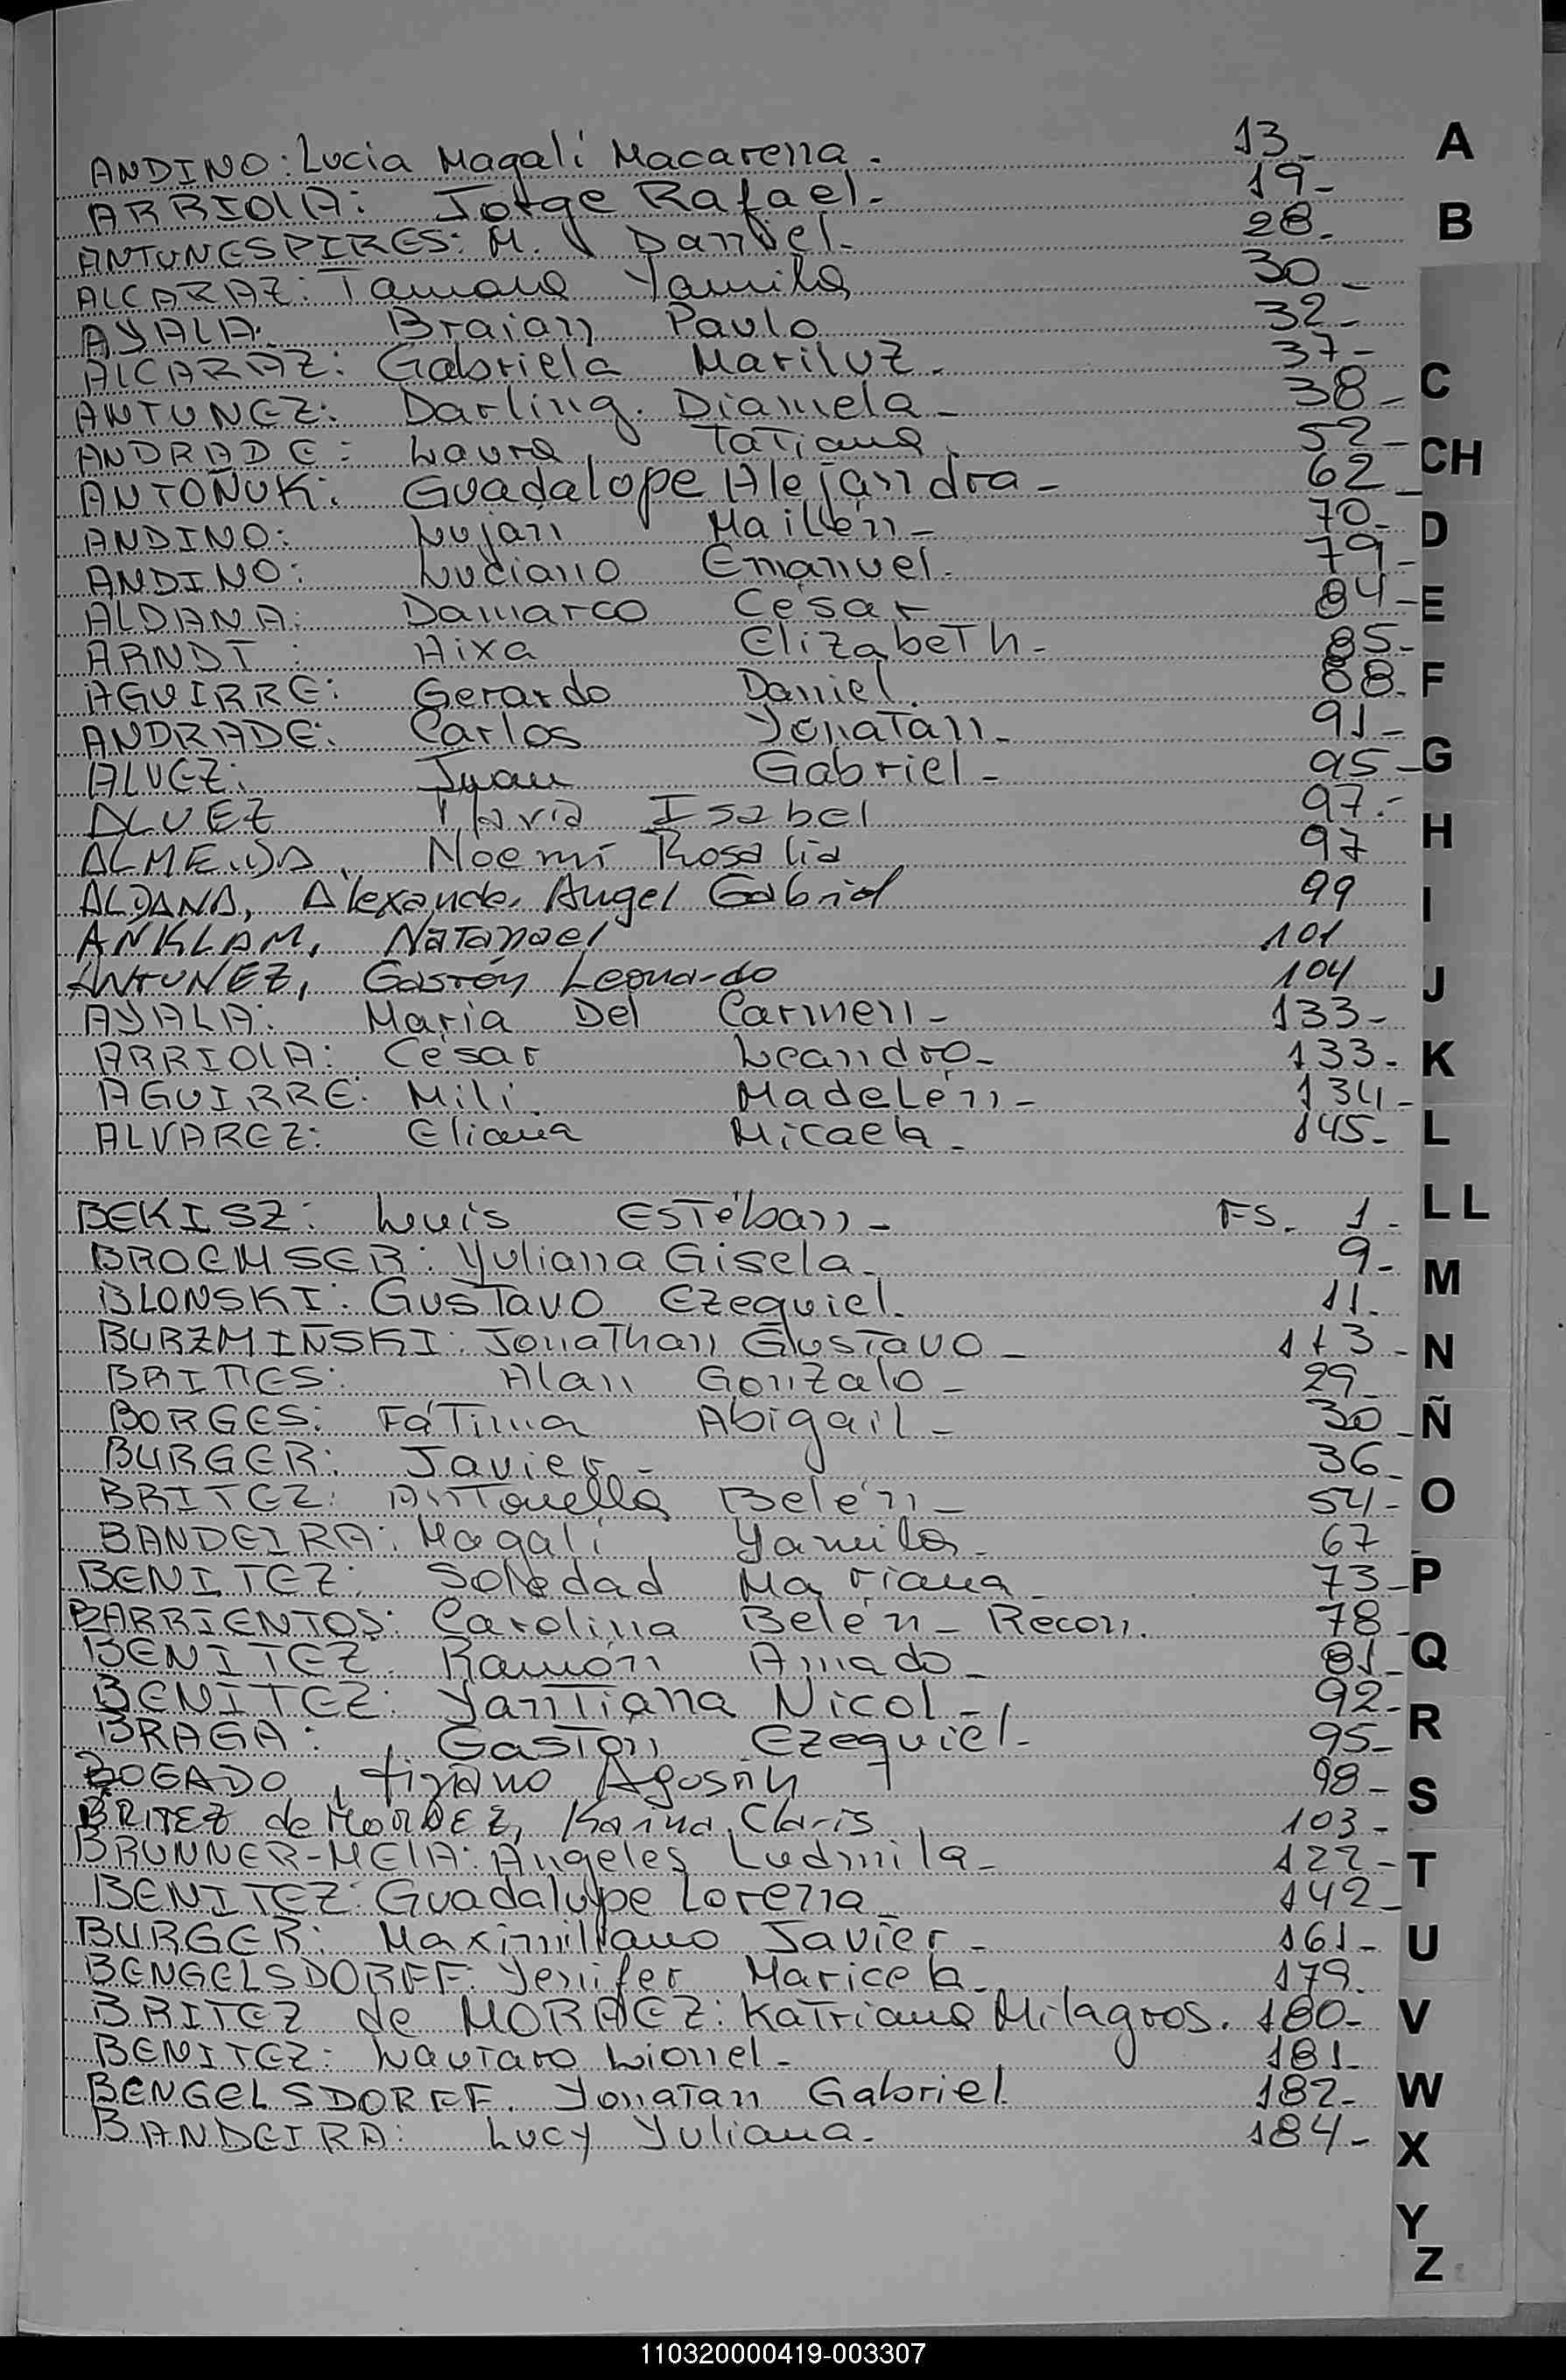 ANDINO: Lucia Magalí Macarena. 13_
ARRIOLA: Jorge Rafael. 19_
ANTUNESPIRES: M. Daniel. 28_
ALCARAZ: Tamara Yamila 30_
AYALA: Braian Paulo 32_
ALCARAZ: Gabriela Mariluz. 37_
ANTUNEZ: Darling. Diamela _ 38_
ANDRADE: Laura Tatiana. 52_
ANTOÑUK: Guadalope Alejandra _ 62_
ANDINO: Lujan Maillén _ 70_
ANDINO: Luciano Emanuel. 79_
ALDANA: Damarco César 84_
ARNDT: Aixa Elizabeth _ 85_
AGUIRRE: Gerardo Daniel. 88_
ANDRADE: Carlos Yonatan _ 91_
ALVEZ: Juan Gabriel _ 95_
ALVEZ María Isabel 97.-
ALMEIDA, Noemí Rosalia 97
ALDANA, Alexander Angel Gabriel 99
ANKLAM, Natanael 101
ANTUNEZ, Gastón Leonardo 104
AYALA: Maria Del Carmen _ 133_
ARRIOLA: César Leandro _ 133_
AGUIRRE: Mili Madelén _ 134_
ALVAREZ: Eliana Micaela _ 145_
BEKISZ: Luis Estéban _ FS. 1_
BROEMSER: Yuliana Gisela _ 9_
BLONSKI: Gustavo Ezequiel. 11_
BURZMIÑSKI: Jonathan Gustavo _ 113_
BRITES: Alan Gonzalo _ 29_
BORGES: Fátima Abigail _ 30_
BURGER: Javier _ 36_
BRITEZ: Antonella Belén _ 54_
BANDEIRA: Magalí Yamila _ 67_
BENITEZ: Soledad Mariana _ 73_
BARRIENTOS: Carolina Belén _ Recon. 78_
BENITEZ: Ramón Amado _ 81_
BENITEZ: Yantiana Nicol _ 92_
BRAGA: Gastón Ezequiel _ 95_
BOGADO, tiziano Agustín 98_
BRITEZ de MORAEZ, Karina Claris 103_
BRUNNER-MEIA: Angeles Ludmila _ 122_
BENITEZ: Guadalupe Lorena _ 142_
BURGER: Maximiliano Javier _ 161_
BENGELSDORFF: Yenifer Maricela _ 179_
BRITEZ de MORAEZ: Katriana Milagros. 180_
BENITEZ: Lautaro Lionel _ 181_
BENGELSDORFF. Yonatan Gabriel 182_
BANDEIRA: Lucy Yuliana _ 184_
A
B
C
CH
D
E
F
G
H
I
J
K
L
LL
M
N
Ñ
O
P
Q
R
S
T
U
V
W
X
Y
Z
110320000419-003307